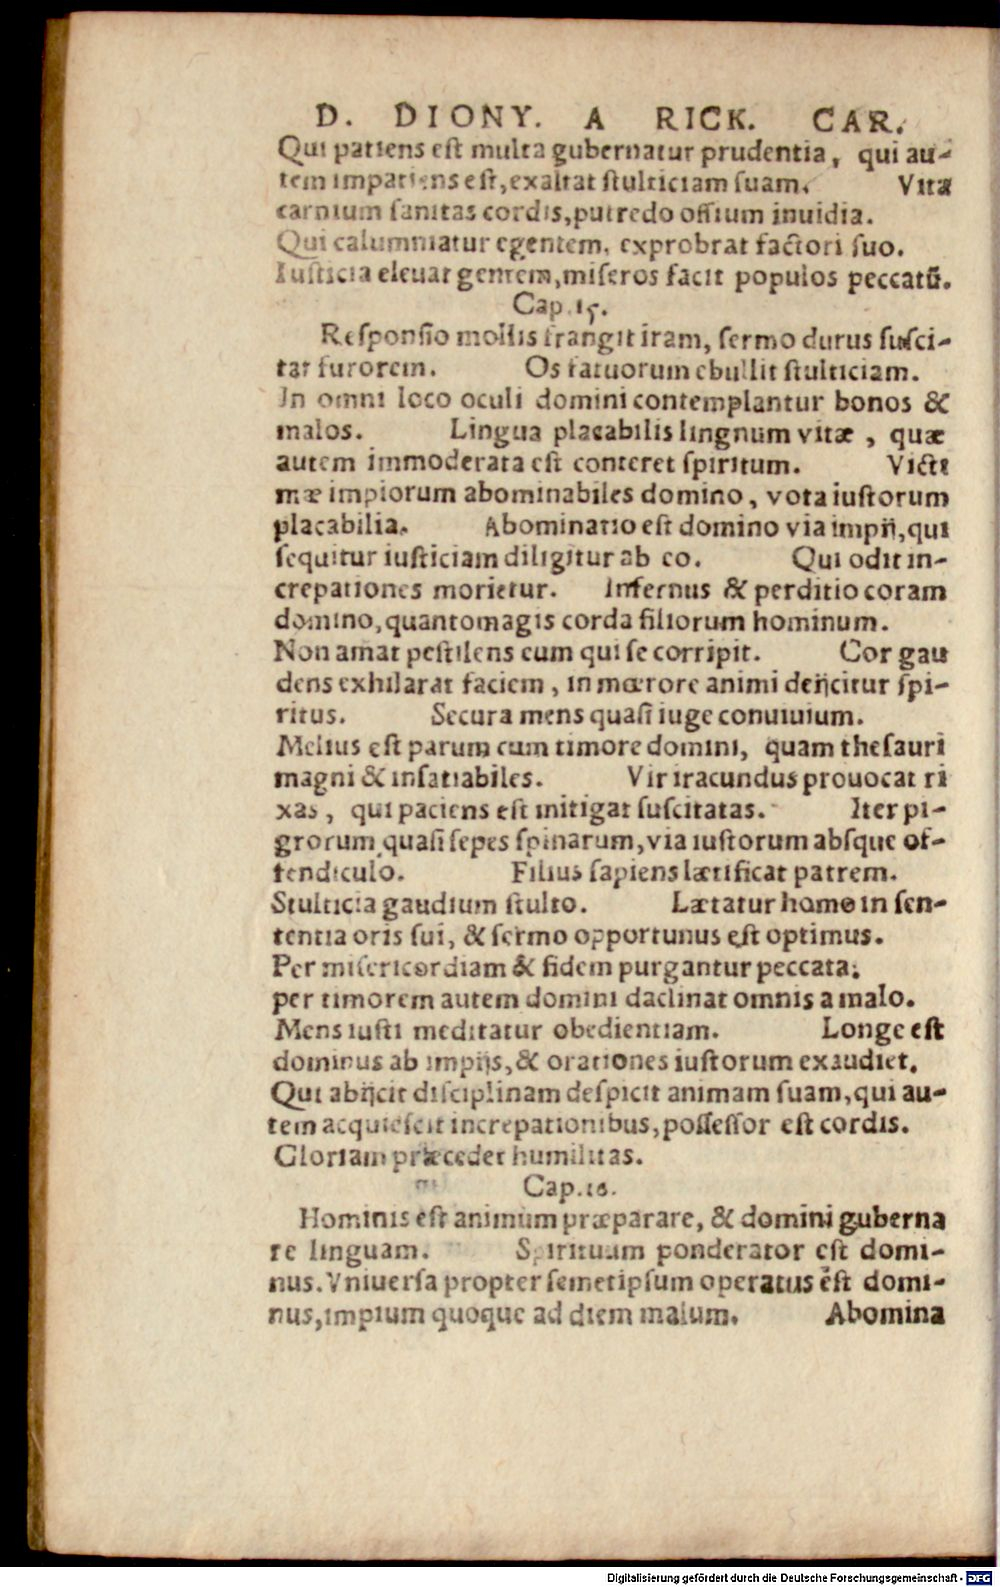 D. DIONY. A RICK. CAR.
Qui patiens est multa gubernatur prudentia, qui au-
tem impatiens est, exaltat stulticiam suam. Vita
carnium sanitas cordis, putredo ossium inuidia.
Qui calumniatur egentem, exprobrat factori suo.
Iusticia eleuat gentem, miseros facit populos peccatũ.
Cap. 15.
Responsio mollis frangit iram, sermo durus susci-
tat furorem. Os fatuorum ebullit stulticiam.
In omni loco oculi domini contemplantur bonos &
malos. Lingua placabilis lingnum vitæ, quæ
autem immoderata est conteret spiritum. Victi
mæ impiorum abominabiles domino, vota iustorum
placabilia. Abominatio est domino via impij, qui
sequitur iusticiam diligitur ab eo. Qui odit in-
crepationes morietur. Infernus & perditio coram
domino, quantomagis corda filiorum hominum.
Non amat pestilens eum qui se corripit. Cor gau
dens exhilarat faciem, in mœrore animi deijcitur spi-
ritus. Secura mens quasi iuge conuiuium.
Melius est parum cum timore domini, quam thesauri
magni & insatiabiles. Vir iracundus prouocat ri
xas, qui paciens est mitigat suscitatas. Iter pi-
grorum quasi sepes spinarum, via iustorum absque of-
fendiculo. Filius sapiens lætificat patrem.
Stulticia gaudium stulto. Lætatur homo in sen-
tentia oris sui, & sermo opportunus est optimus.
Per misericordiam & fidem purgantur peccata:
per timorem autem domini daclinat omnis a malo.
Mens iusti meditatur obedientiam. Longe est
dominus ab impijs, & orationes iustorum exaudiet.
Qui abijcit disciplinam despicit animam suam, qui au-
tem acquiescit increpationibus, possessor est cordis.
Gloriam præcedet humilitas.
Cap. 16.
Hominis est animum præparare, & domini guberna
re linguam. Spirituum ponderator est domi-
nus. Vniuersa propter semetipsum operatus est domi-
nus, impium quoque ad diem malum. Abomina
Digitalisierung gefördert durch die Deutsche Forschungsgemeinschaft - DFG